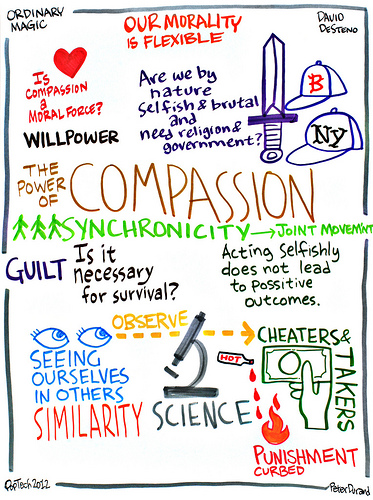 ORDINARY
MAGIC
OUR MORALITY
IS FLEXIBLE
DAVID
DESTENO
Is
COMPASSION
a
MORAL FORCE?
WILLPOWER
Are we by
nature
selfish & brutal
and
need religion &
government?
B
NY
THE
POWER
OF
COMPASSION
SYNCHRONICITY → JOINT MOVEMENT
GUILT
Is it
necessary
for survival?
Acting Selfishly
does not lead
to Possitive
outcomes.
OBSERVE
SEEING
OURSELVES
IN OTHERS
SIMILARITY
SCIENCE
HOT
CHEATERS &
TAKERS
PUNISHMENT
CURBED
PopTech 2012
Peter Durand